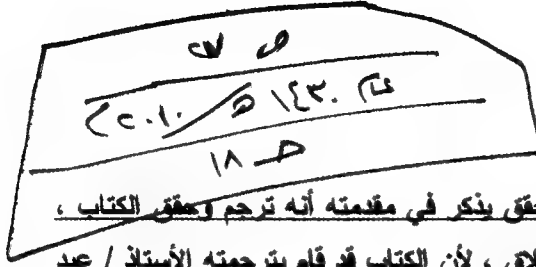 ص
عام ١٤٣٠ هـ / ٢٠١٠ م
صـ ١٨
حقق يذكر في مقدمته أنه ترجم وحقق الكتاب ،
لأن الكتاب قد قام بترجمته الأستاذ / عبد